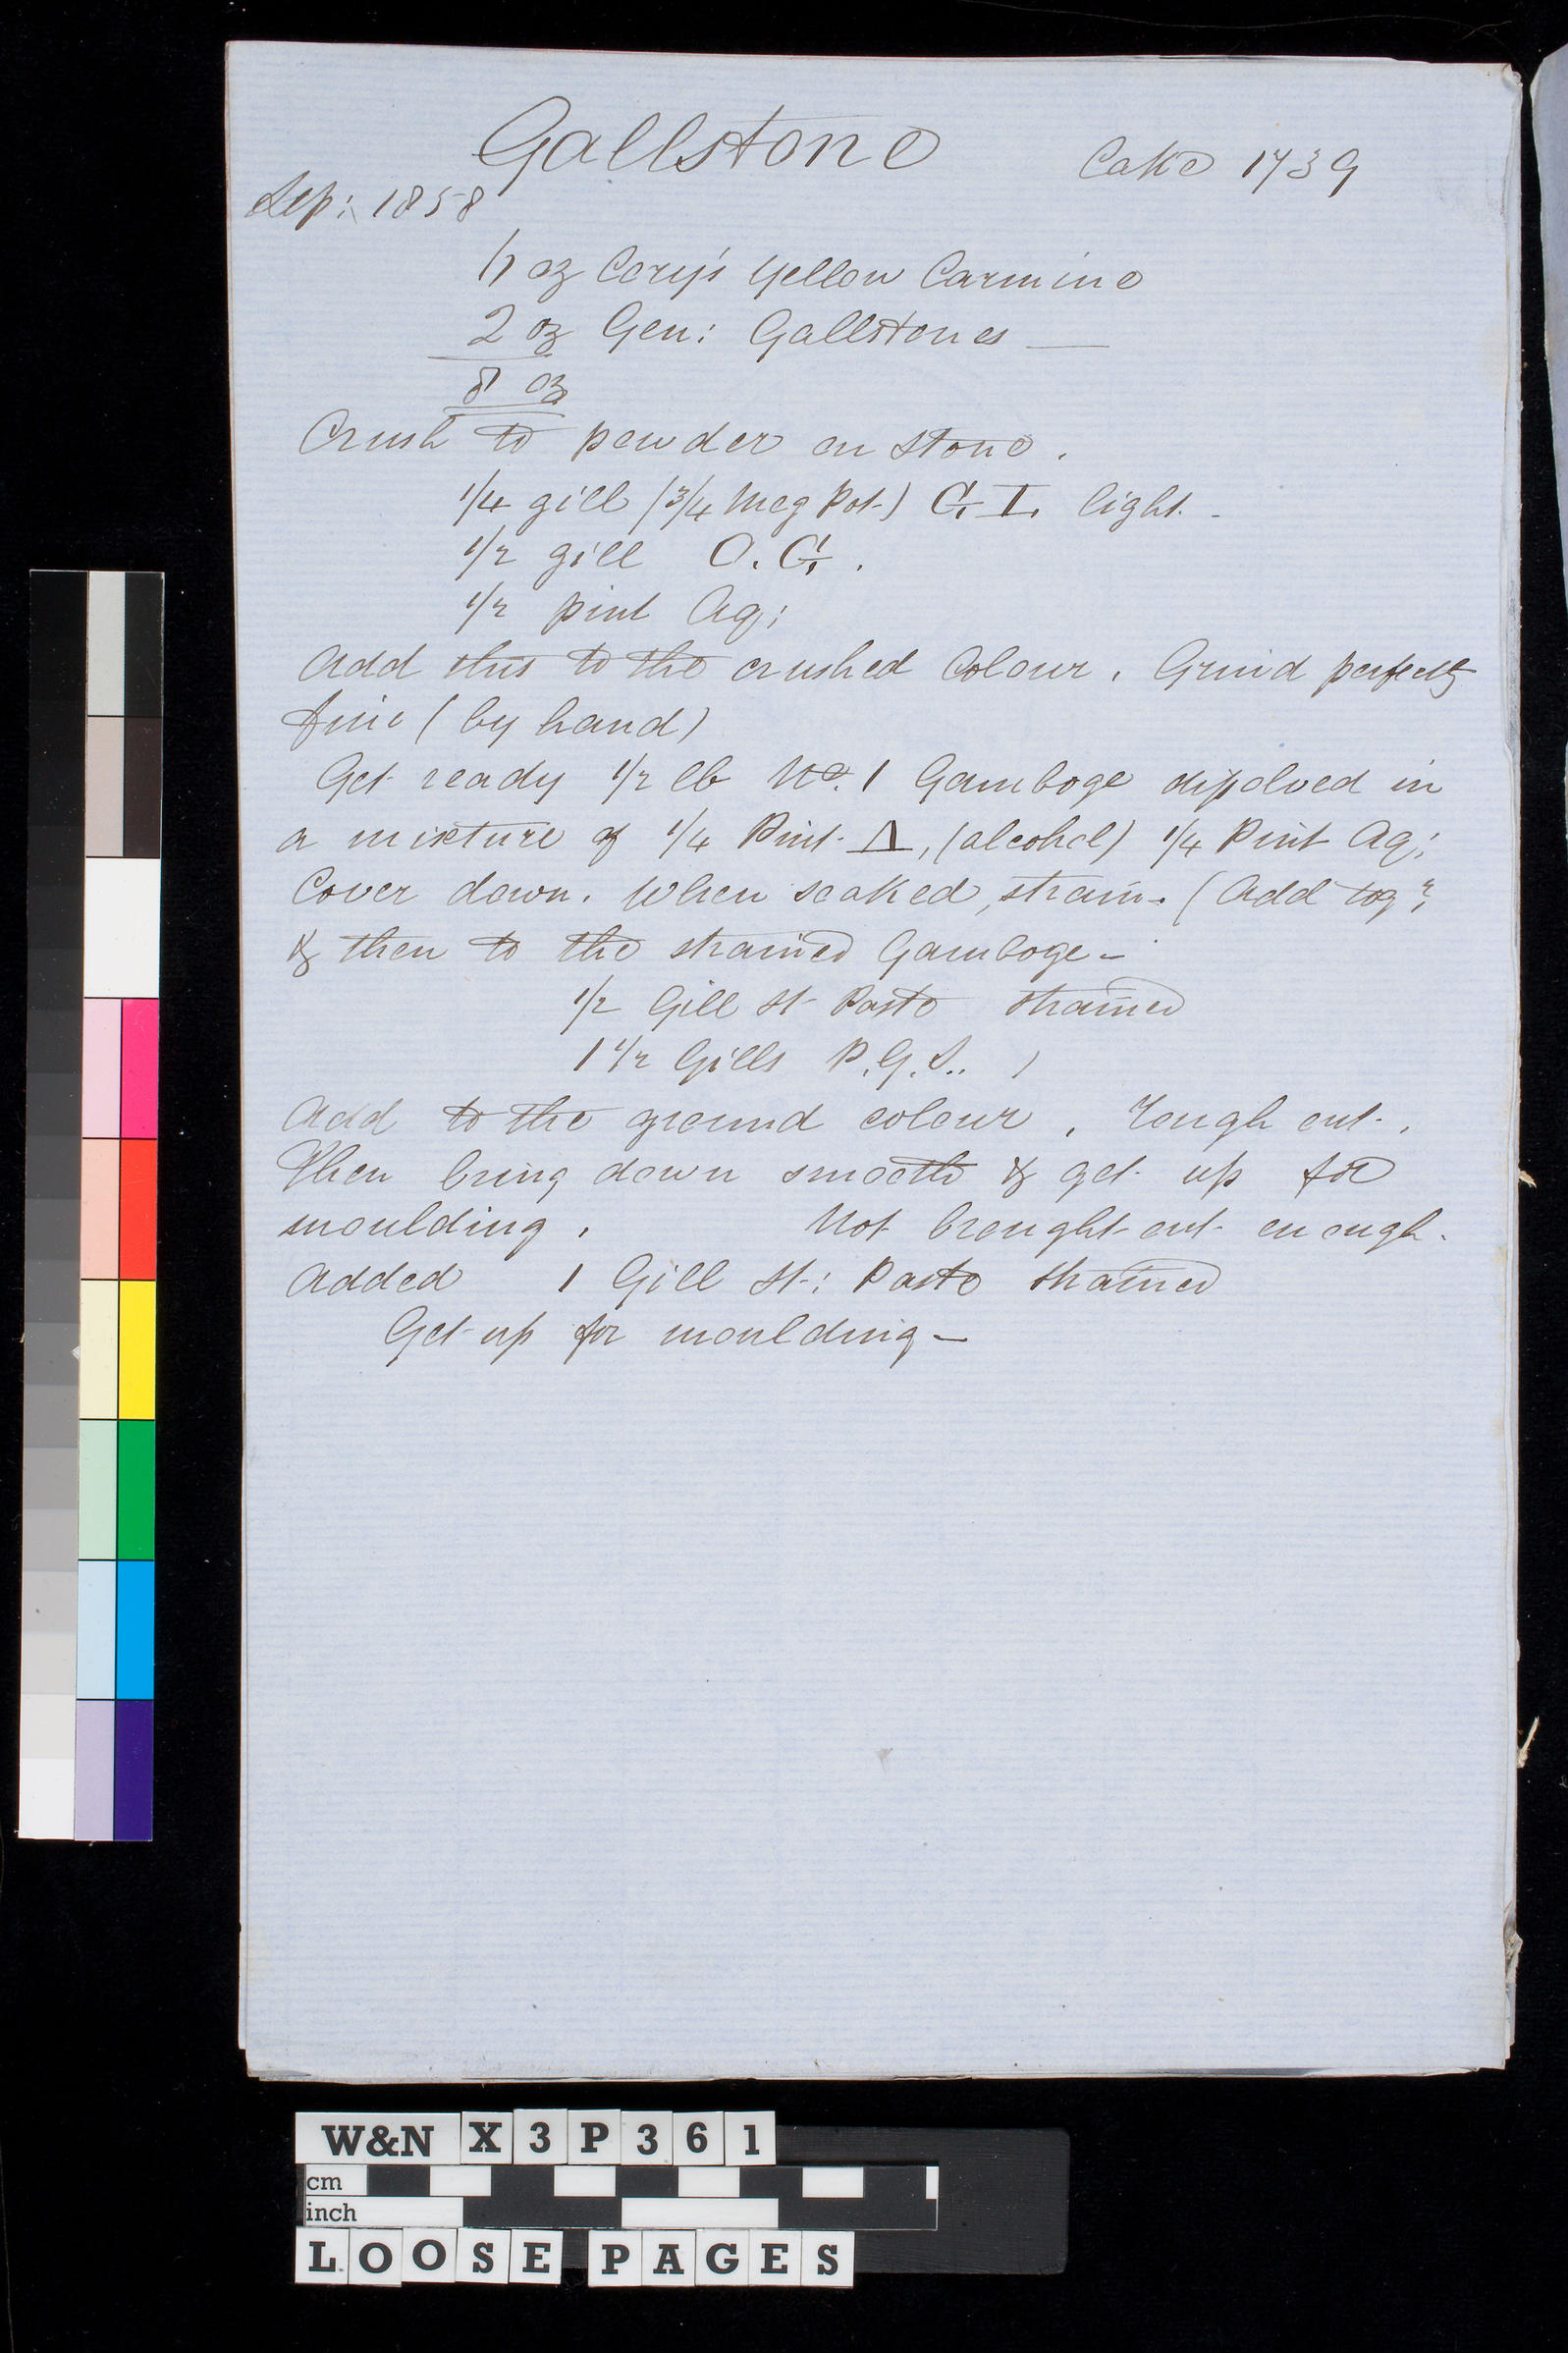 Gallstone Cake 1739
Sep: 1858
6 oz Cory's Yellow Carmine
2 oz Gen: Gallstones —
8 oz
Crush to powder on stone.
1/4 gill (3/4 Meg Pot) G. I. light.
1/2 gill O. G.
1/2 pint Aq;
Add this to the crushed Colour. Grind perfectly
fine (by hand)
Get ready 1/2 lb No. 1 Gamboge dissolved in
a mixture of 1/4 Pint (alcohol) 1/4 Pint Aq;
Cover down. When soaked, strain. (Add tog;
& then to the strained Gamboge —
1/2 Gill St Paste strained
1 1/2 Gills P.G.S.. )
Add to the ground colour. Tough out.
Then bring down smooth & get up for
moulding. Not brought out enough.
Added 1 Gill St: Paste strained
Get up for moulding —
W&N X3P361
cm
inch
LOOSE PAGES